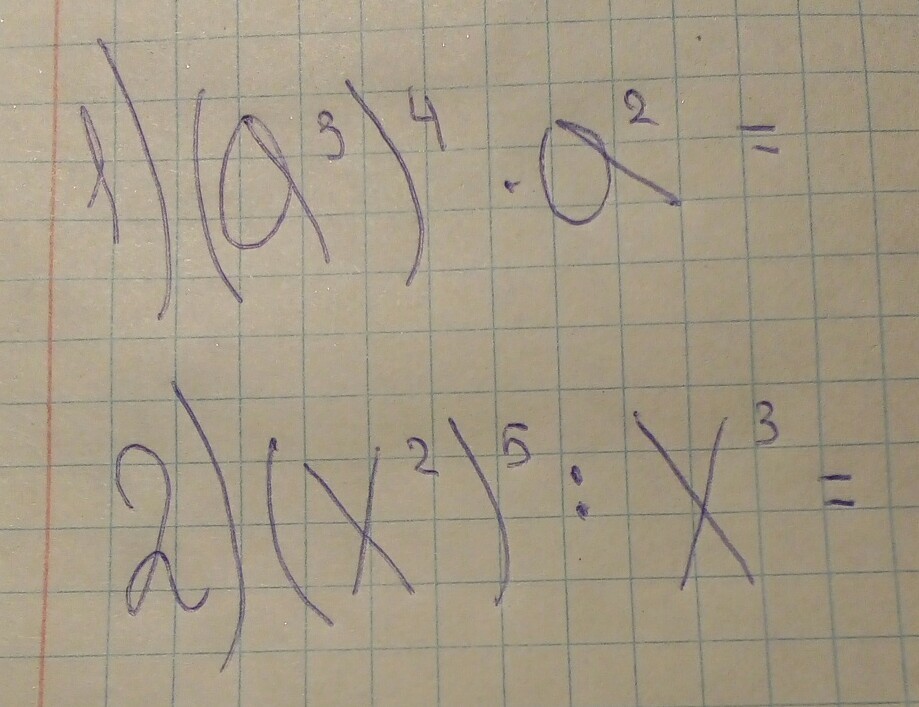 1) (a³)⁴ · a² =
2) (x²)⁵ : x³ =